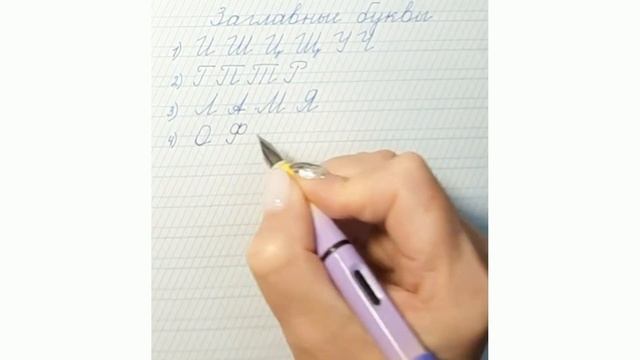 Заглавные буквы
1) И Ш Ц Щ У Ч
2) Г П Т Р
3) Л А М Я
4) О Ф